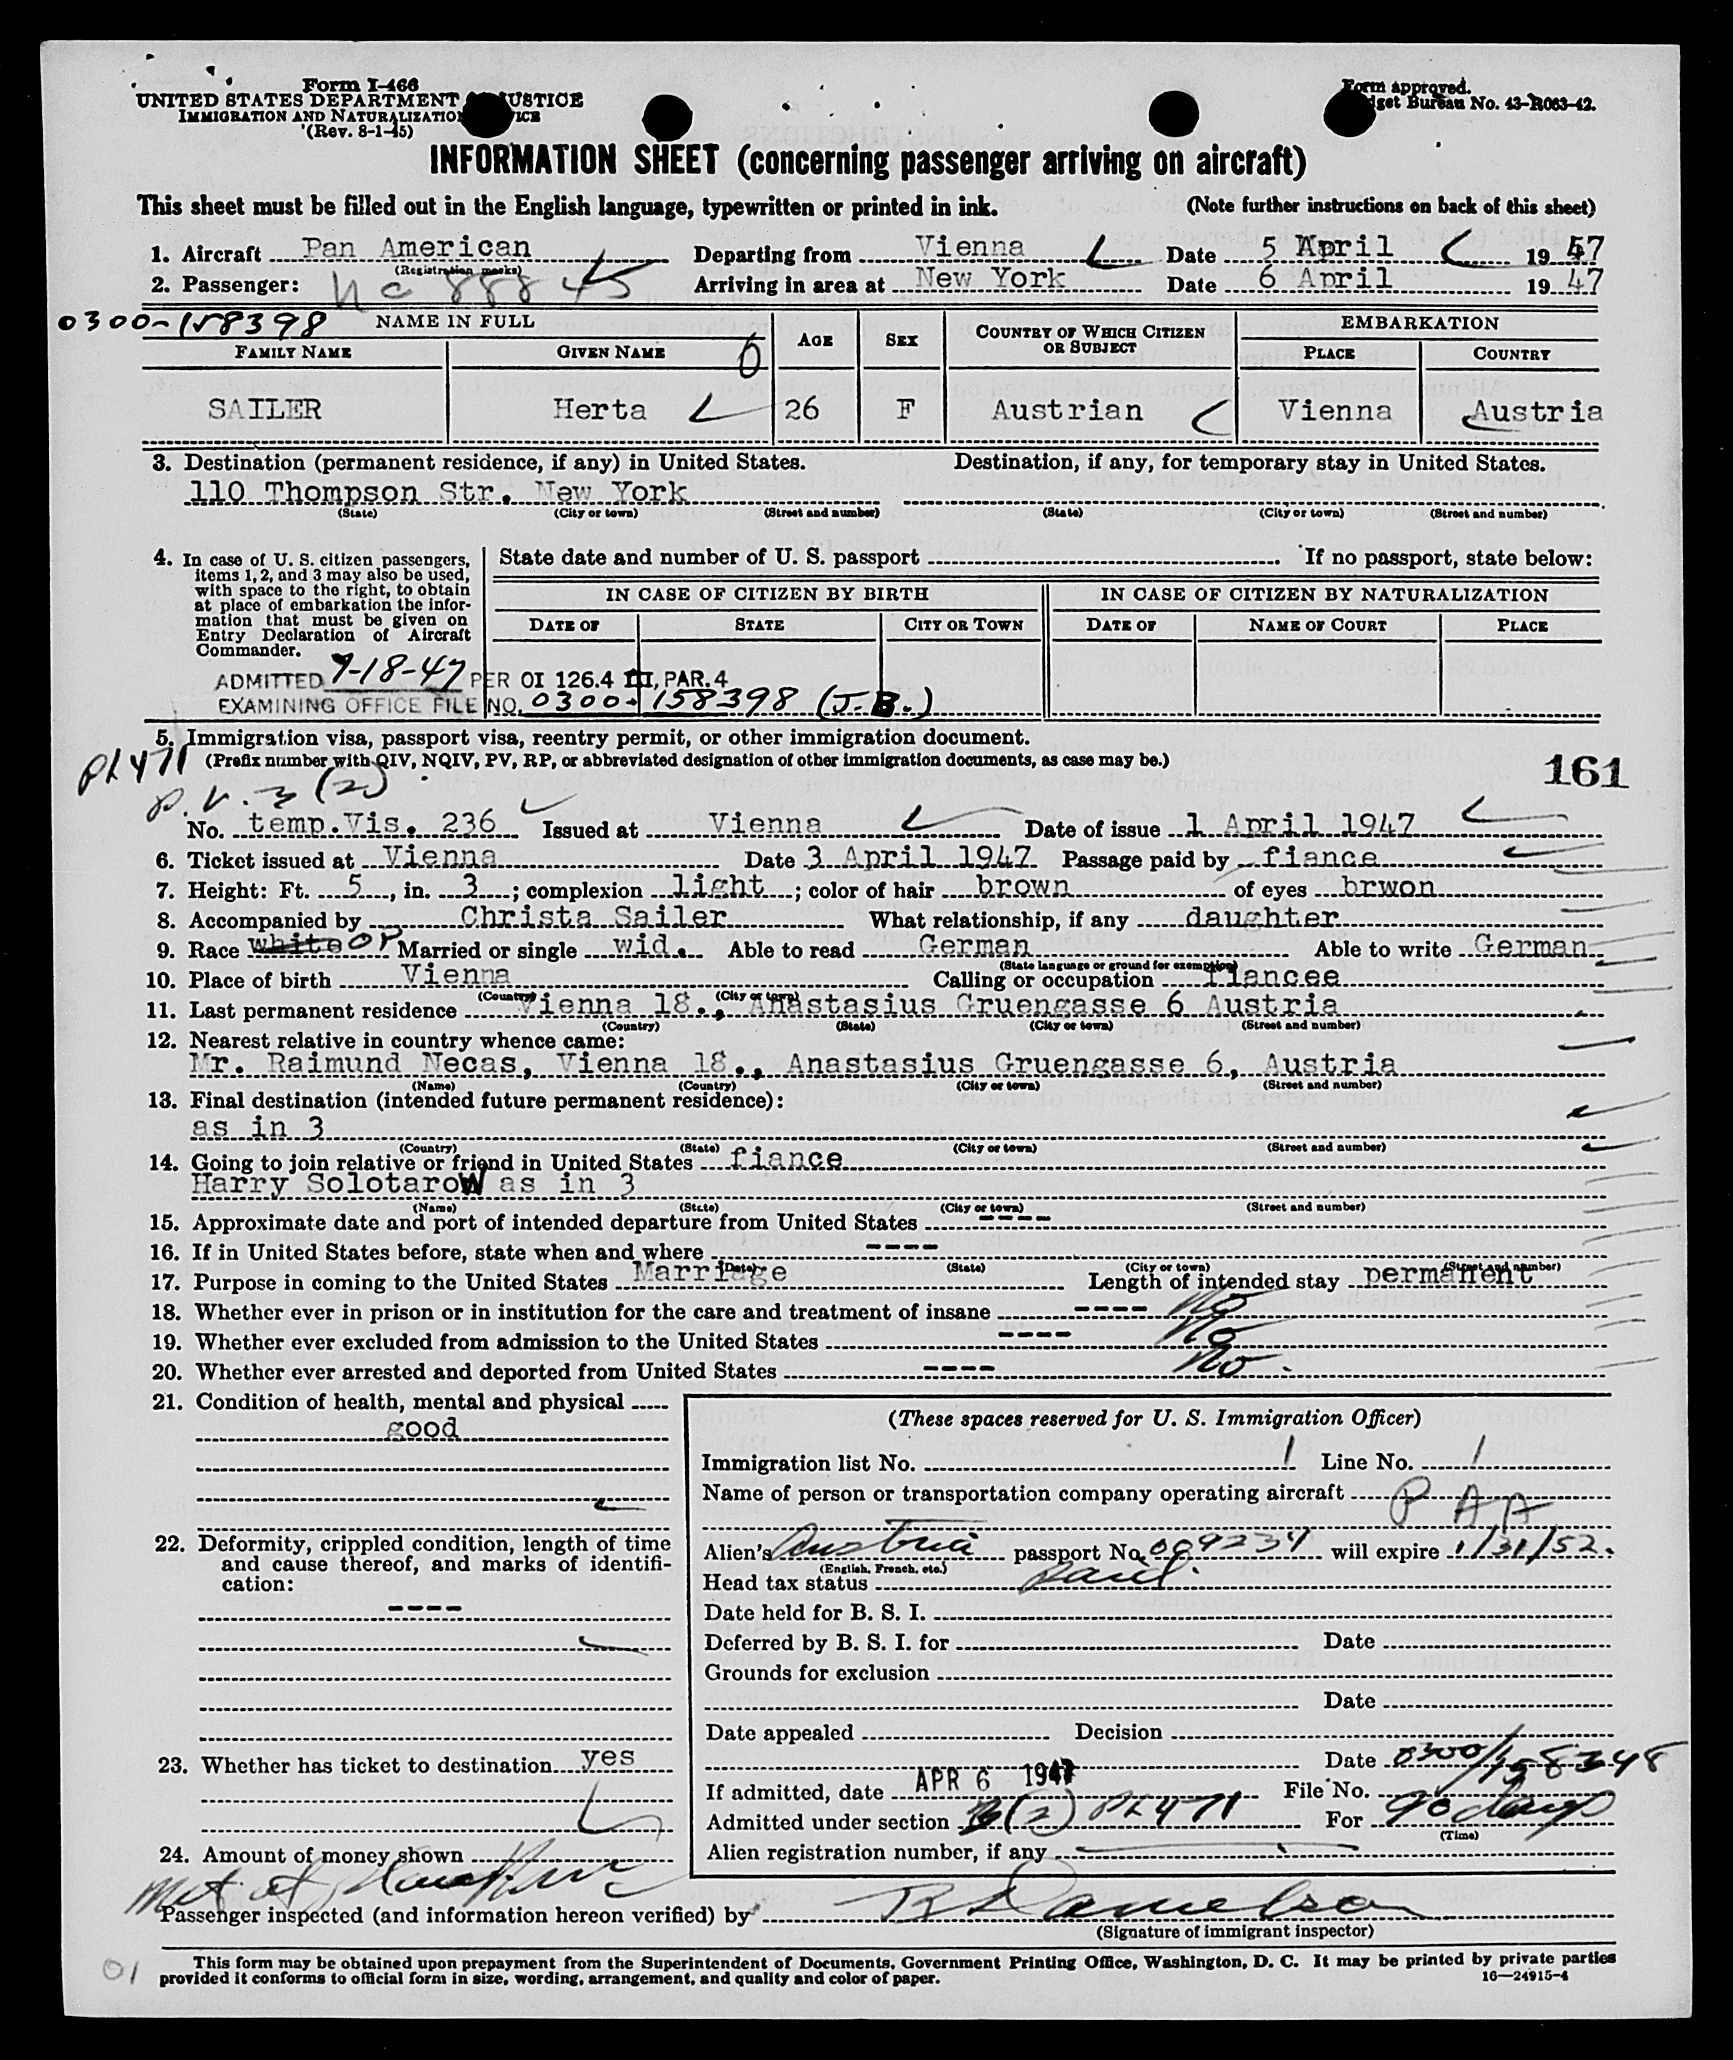 Form I-466
UNITED STATES DEPARTMENT JUSTICE
IMMIGRATION AND NATURALIZATION
(Rev. 8-1-45)
Form approved.
Budget Bureau No. 43-R063-42.
INFORMATION SHEET (concerning passenger arriving on aircraft)
This sheet must be filled out in the English language, typewritten or printed in ink. (Note further instructions on back of this sheet)
1. Aircraft Pan American Departing from Vienna Date 5 April 1947
(Registration marks)
2. Passenger: NC 88845 Arriving in area at New York Date 6 April 1947
0300-158398 NAME IN FULL AGE SEX COUNTRY OF WHICH CITIZEN OR SUBJECT EMBARKATION
FAMILY NAME GIVEN NAME PLACE COUNTRY
SAILER Herta 26 F Austrian Vienna Austria
3. Destination (permanent residence, if any) in United States. Destination, if any, for temporary stay in United States.
110 Thompson Str. New York
(State) (City or town) (Street and number) (State) (City or town) (Street and number)
4. In case of U. S. citizen passengers, items 1, 2, and 3 may also be used, with space to the right, to obtain at place of embarkation the information that must be given on Entry Declaration of Aircraft Commander.
State date and number of U. S. passport If no passport, state below:
IN CASE OF CITIZEN BY BIRTH IN CASE OF CITIZEN BY NATURALIZATION
DATE OF STATE CITY OR TOWN DATE OF NAME OF COURT PLACE
ADMITTED 9-18-47 PER OI 126.4 III, PAR. 4
EXAMINING OFFICE FILE NO. 0300-158398 (J.B.)
5. Immigration visa, passport visa, reentry permit, or other immigration document.
PL 471 (Prefix number with QIV, NQIV, PV, RP, or abbreviated designation of other immigration documents, as case may be.)
161
P.V. 3(2)
No. temp.Vis. 236 Issued at Vienna Date of issue 1 April 1947
6. Ticket issued at Vienna Date 3 April 1947 Passage paid by fiance
7. Height: Ft. 5, in. 3; complexion light; color of hair brown of eyes brwon
8. Accompanied by Christa Sailer What relationship, if any daughter
9. Race white Married or single wid. Able to read German Able to write German
(State language or ground for exemption)
10. Place of birth Vienna Calling or occupation Fiancee
(Country) (City or town)
11. Last permanent residence Vienna 18., Anastasius Gruengasse 6 Austria
(Country) (State) (City or town) (Street and number)
12. Nearest relative in country whence came:
Mr. Raimund Necas, Vienna 18., Anastasius Gruengasse 6, Austria
(Name) (Country) (City or town) (Street and number)
13. Final destination (intended future permanent residence):
as in 3
(Country) (State) (City or town) (Street and number)
14. Going to join relative or friend in United States fiance
Harry Solotarow as in 3
(Name) (State) (City or town) (Street and number)
15. Approximate date and port of intended departure from United States ----
16. If in United States before, state when and where ----
(Date) (State) (City or town) (Street and number)
17. Purpose in coming to the United States Marriage Length of intended stay permanent
18. Whether ever in prison or in institution for the care and treatment of insane ---- No
19. Whether ever excluded from admission to the United States ---- No
20. Whether ever arrested and deported from United States ---- No
21. Condition of health, mental and physical
good
22. Deformity, crippled condition, length of time and cause thereof, and marks of identification:
----
23. Whether has ticket to destination yes
24. Amount of money shown
(These spaces reserved for U. S. Immigration Officer)
Immigration list No. 1 Line No. 1
Name of person or transportation company operating aircraft PAA
Alien's Austria passport No. 009234 will expire 1/31/52.
(English, French, etc.)
Head tax status Paid.
Date held for B. S. I.
Deferred by B. S. I. for Date
Grounds for exclusion
Date
Date appealed Decision
Date 0300/158348
If admitted, date APR 6 1947 File No.
Admitted under section 3(2) PL 471 For 90 days
(Time)
Alien registration number, if any
Met at
Passenger inspected (and information hereon verified) by R Danielson
(Signature of immigrant inspector)
01
This form may be obtained upon prepayment from the Superintendent of Documents, Government Printing Office, Washington, D. C. It may be printed by private parties
provided it conforms to official form in size, wording, arrangement, and quality and color of paper. 16—24915-4